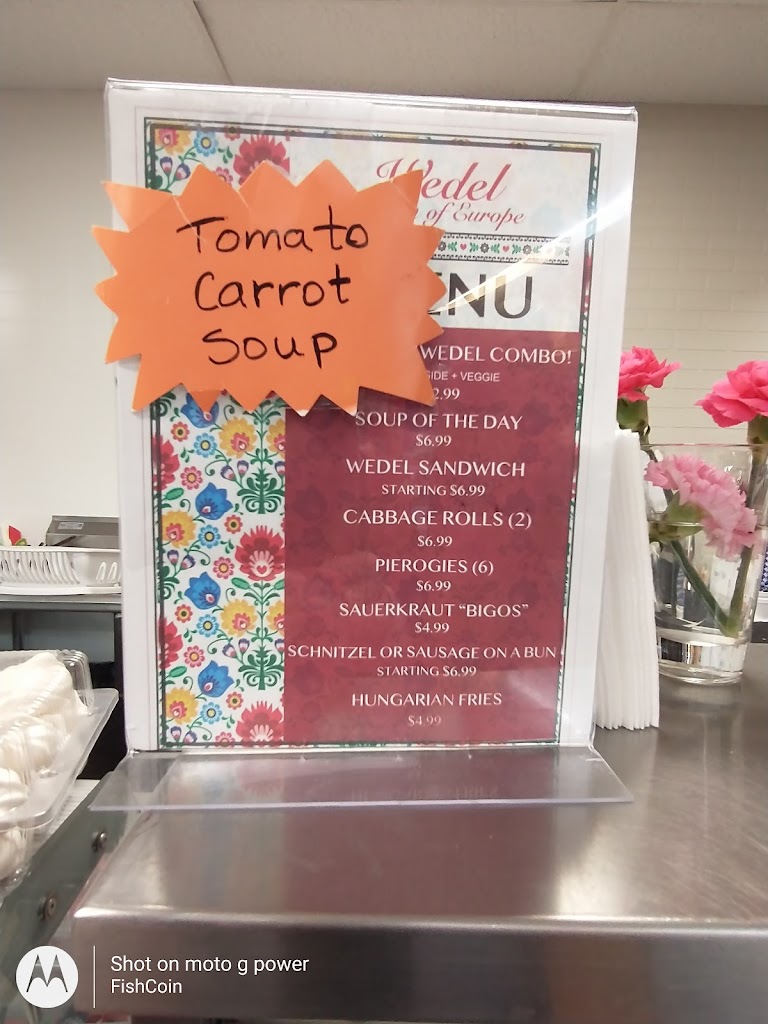 Tomato
Carrot
Soup
Wedel
of Europe
WEDEL COMBO!
+ VEGGIE
SOUP OF THE DAY
$6.99
WEDEL SANDWICH
STARTING $6.99
CABBAGE ROLLS (2)
$6.99
PIEROGIES (6)
$6.99
SAUERKRAUT “BIGOS”
$4.99
SCHNITZEL OR SAUSAGE ON A BUN
STARTING $6.99
HUNGARIAN FRIES
$4.99
Shot on moto g power
FishCoin